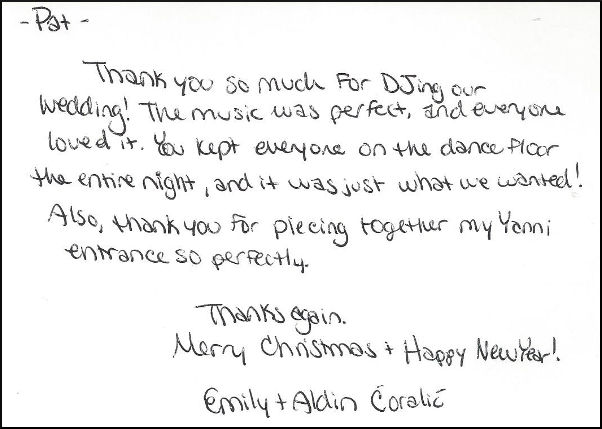 - Pat -
Thank you so much for DJing our
wedding! The music was perfect, and everyone
loved it. You kept everyone on the dance floor
the entire night, and it was just what we wanted!
Also, thank you for piecing together my Yanni
entrance so perfectly.
Thanks again.
Merry Christmas + Happy New Year!
Emily + Aldin Ćoralić